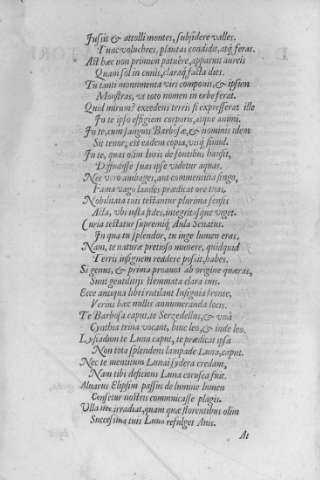 Iussit & attolli montes, subsidere valles.
Tunc volucres, plantas condidit, atq; feras.
Ast hæc non primùm patuêre, apparuit aureis
Quàm sol in cunis, claraq; facta dies.
Tu tanti monumenta viri componis, & ipsum
Monstras, vt toto nomen in orbe ferat.
Quid mirum? excedens terris si expresserat ille
In te ipso effigiem corporis, atque animi.
In te, cum sanguis Barbosæ, & nominis idem
Sit tenor, est eadem copia, visq; simul.
In te, quas olim Iuris de fontibus hausit,
Diffudisse suas ipse videtur aquas.
Nec vero ambages, aut commentitia fingo,
Fama vago laudes prædicat ore tuas.
Nobilitata tuis testantur plurima sensis
Acta, vbi iusta fides, integritasque viget.
Curia testatur supremiq; Aula Senatus.
In qua tu splendor, tu iuge lumen eras,
Nam, te naturæ pretioso munere, quidquid
Terris insignem reddere possit, habes.
Si genus, & prima proauos ab origine quæras,
Sunt gentilitijs stemmata clara tuis.
Ecce antiqua libri rutilant Insignia fronte,
Verùm hæc nullis annumeranda locis.
Te Barbosa caput, te Sergedellus, & vnà
Cynthia trina vocant, hinc leo, & inde leo.
Lysiadum te Luna caput, te prædicat ipsa
Non tota splendens lampade Luna, caput.
Nec te mentitum Lunai sydera credam,
Nam tibi deficiens Luna corusca fuit.
Aluarus Elipsim passus de lumine lumen
Censetur nostris communicasse plagis.
Vlla nec irradiat, quam quæ florentibus olim
Successura tuis Luna refulget Auis.
At